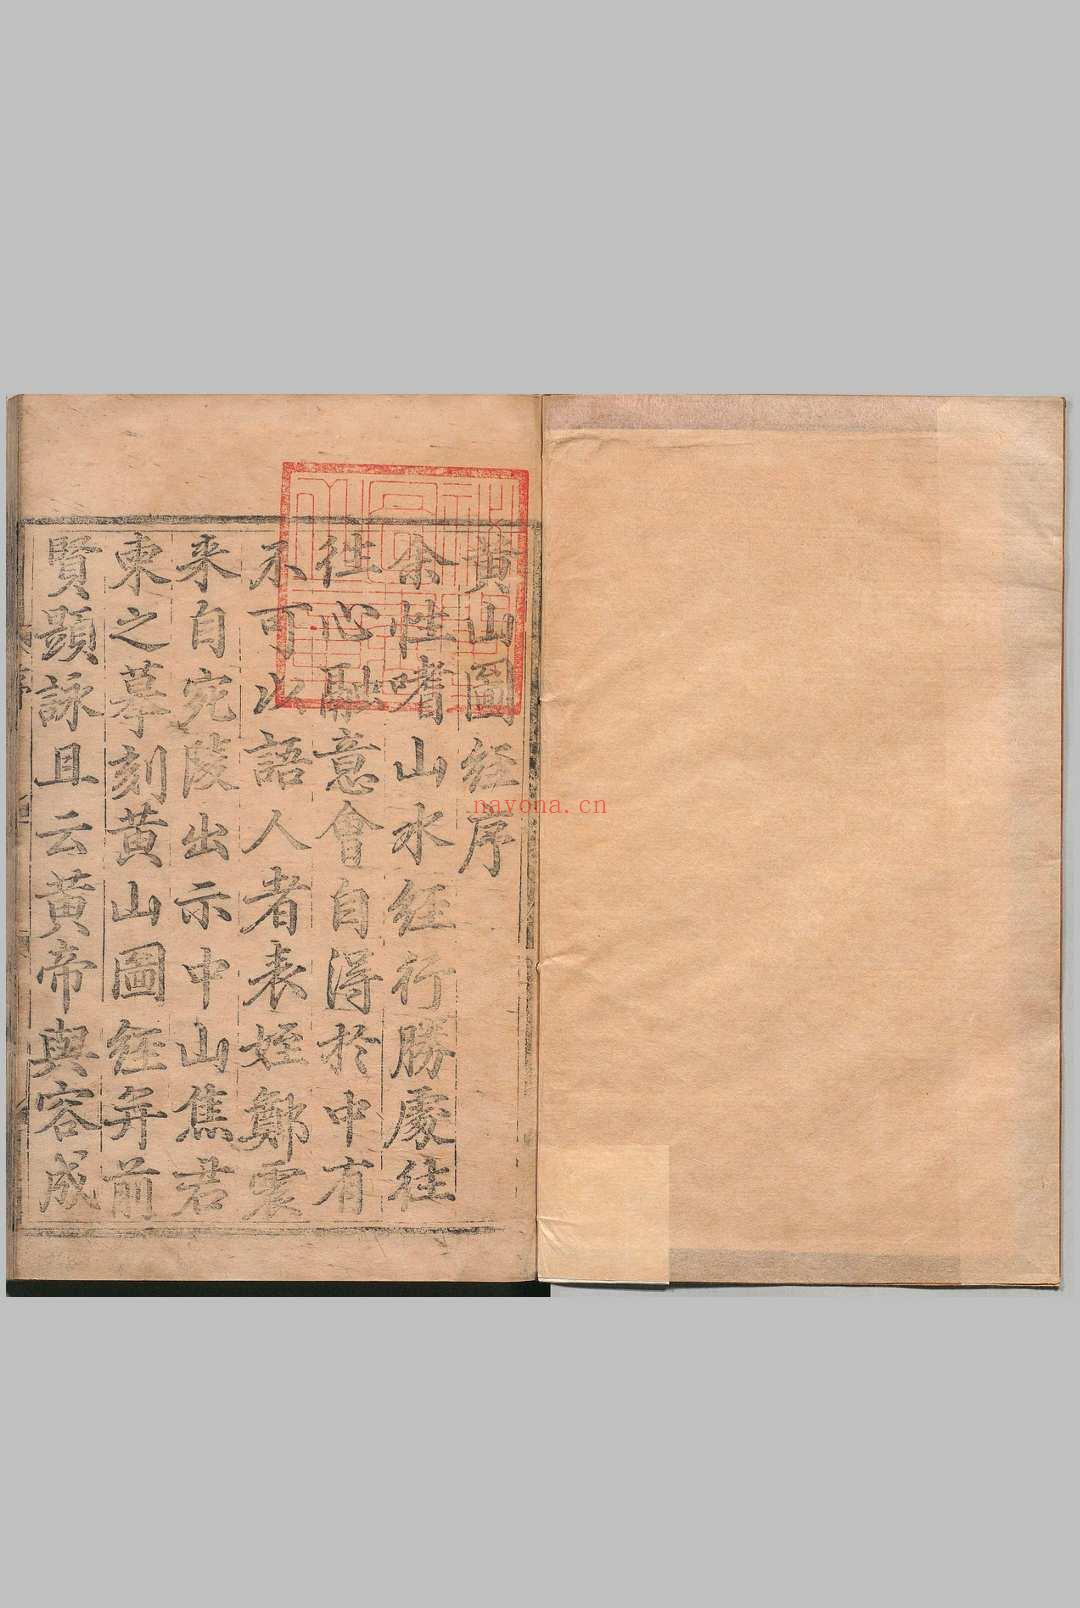 黄山圖經序
余性嗜山水經行勝處往
徃心融意會自得於中有
不可以語人者表姪鄭震
来自宛陵出示中山焦君
東之摹刻黄山圖經并前
賢題詠且云黄帝與容成
nayona.cn